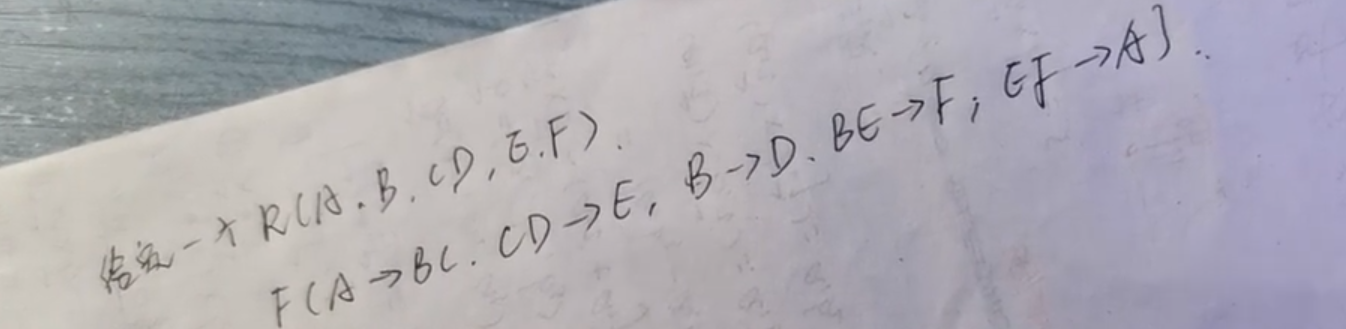 给定一个 R(A.B.CD,E.F).
F(A→BC.CD→E,B→D.BE→F;EF→A}.